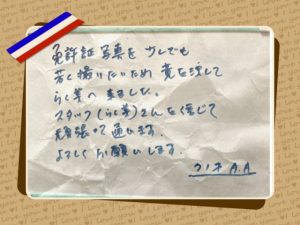 免許証写真を少しでも
若く撮りたいため 意を決して
らく美へ来ました。
スタッフ(らく美)さんを信じて
頑張って通います。
よろしくお願いします。
A.A